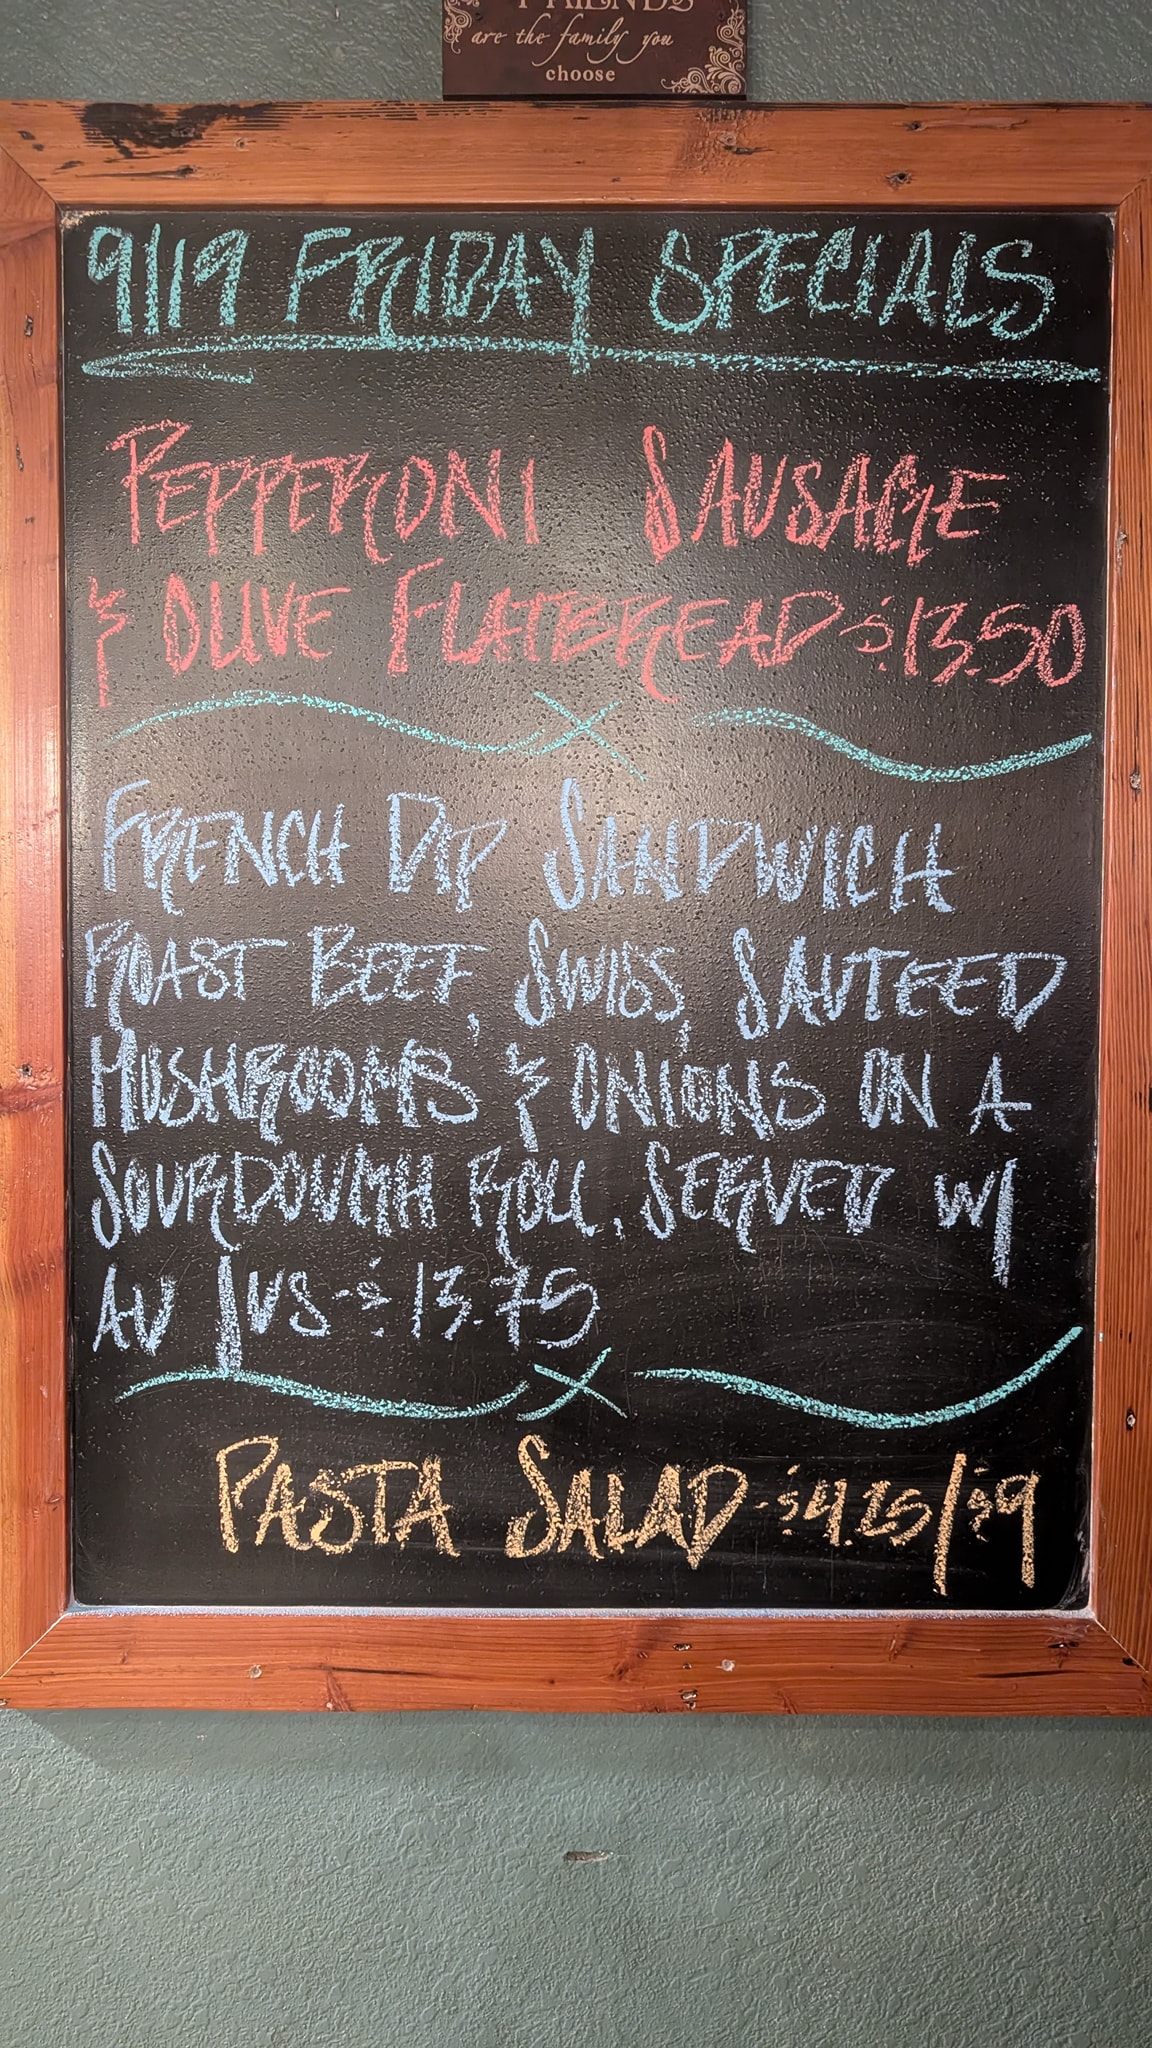 FRIENDS
are the family you
choose
9/19 FRIDAY SPECIALS
PEPPERONI SAUSAGE
& OLIVE FLATBREAD $13.50
FRENCH DIP SANDWICH
ROAST BEEF, SWISS, SAUTEED
MUSHROOMS & ONIONS ON A
SOURDOUGH ROLL. SERVED W/
AU JUS - $13.75
PASTA SALAD - $4.25/$9